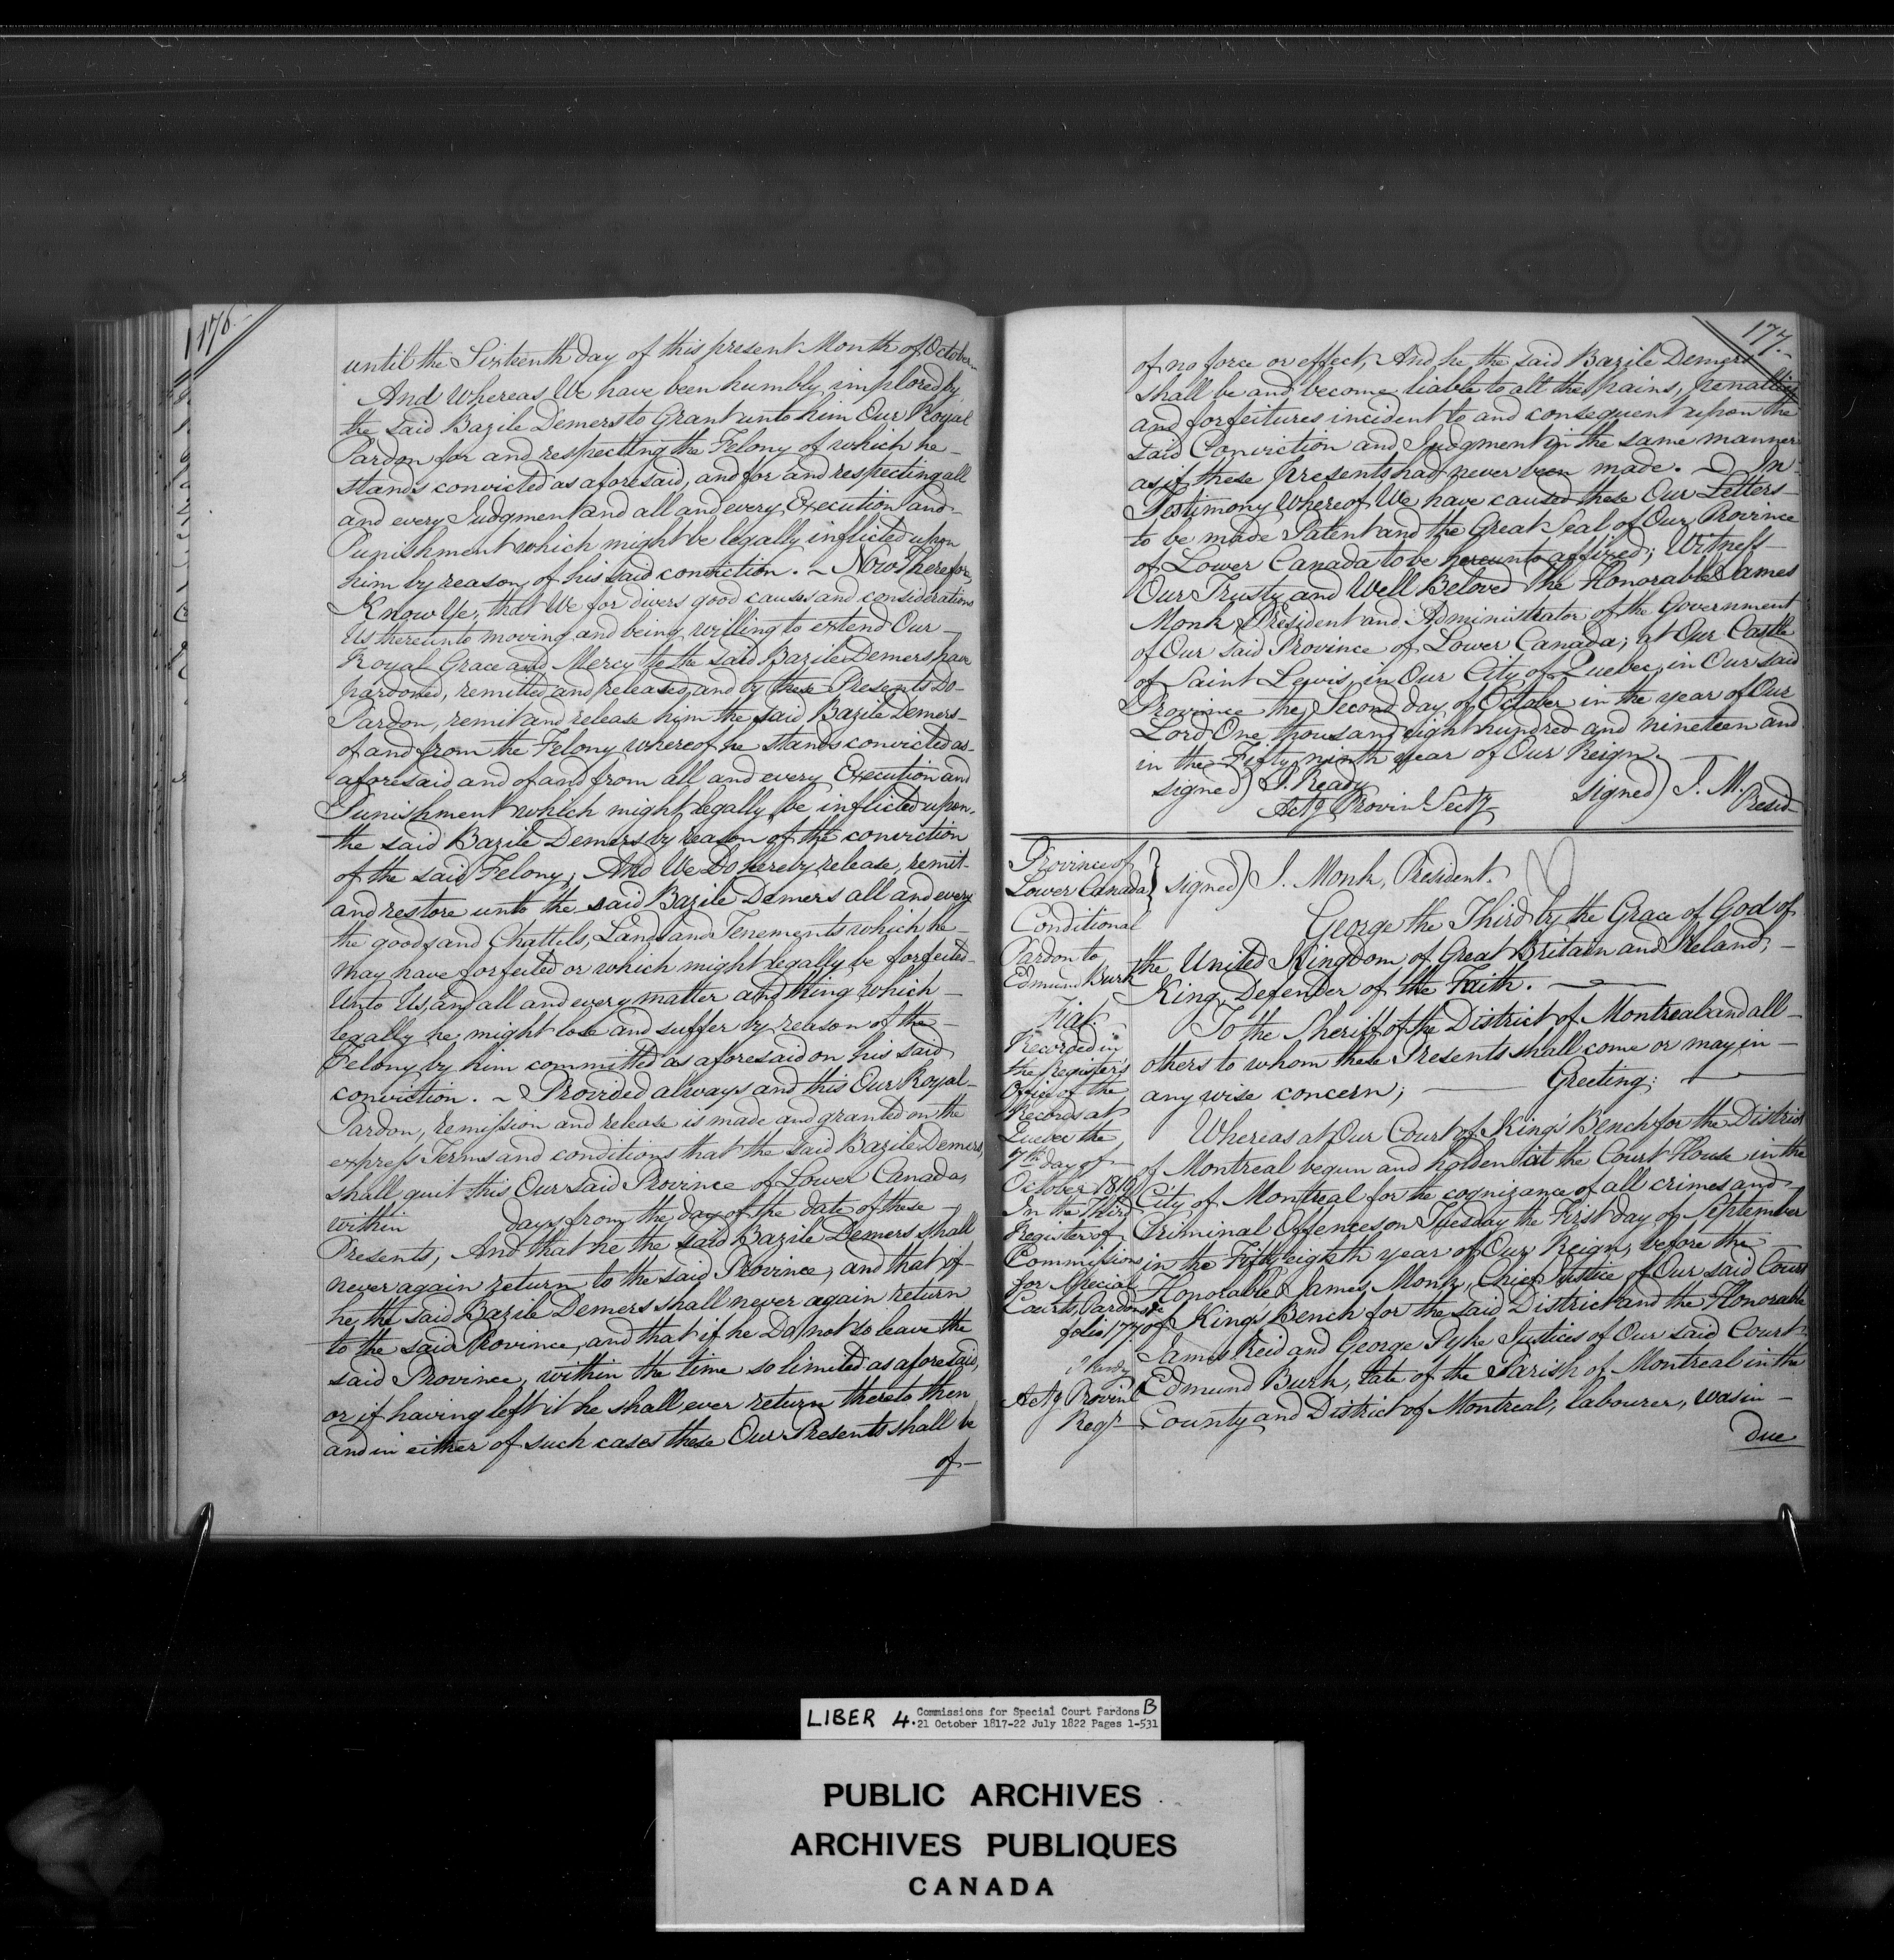 176.
until the Sixteenth day of this present Month of October
And Whereas We have been humbly implored by
the said Bazile Demers to Grant unto him Our Royal
Pardon for and respecting the Felony of which he
stands convicted as aforesaid, and for and respecting all
and every Judgment and all and every Execution and
Punishment which might be legally inflicted upon
him by reason of his said conviction. ~ Now Therefore,
Know Ye, that We for divers good causes and considerations
Us thereunto moving and being willing to extend Our
Royal Grace and Mercy to the said Bazile Demers have
pardoned, remitted and released, and by these Presents Do
Pardon, remit and release him the said Bazile Demers
of and from the Felony whereof he stands convicted as
aforesaid and of and from all and every Execution and
Punishment which might legally be inflicted upon
the said Bazile Demers by reason of the conviction
of the said Felony, And We Do hereby release, remit
and restore unto the said Bazile Demers all and every
the goods and Chattels, Lands and Tenements which he
may have forfeited or which might legally be forfeited
Unto Us, and all and every matter and thing which
legally he might lose and suffer by reason of the
Felony by him committed as aforesaid on his said
conviction. ~ Provided always and this Our Royal
Pardon, remission and release is made and granted on the
express Terms and conditions that the said Bazile Demers,
shall quit this Our said Province of Lower Canada,
within days from the day of the date of these
Presents, And that he the said Bazile Demers shall
never again return to the said Province, and that if
he, the said Bazile Demers shall never again return
to the said Province, and that if he Do not so leave the
said Province, within the time so limited as aforesaid,
or if having left it he shall ever return thereto then
and in either of such cases these Our Presents shall be
of
177.
of no force or effect, And he the said Bazile Demers
shall be and become liable to all the pains, penalties
and forfeitures incident to and consequent upon the
said Conviction and Judgment in the same manner
as if these presents had never been made. ~ In
Testimony Whereof We have caused these Our Letters
to be made Patent and the Great Seal of Our Province
of Lower Canada to be hereunto affixed; Witness
Our Trusty and Well Beloved the Honorable James
Monk President and Administrator of the Government
of Our said Province of Lower Canada; at Our Castle
of Saint Lewis, in Our City of Quebec, in Our said
Province the Second day of October in the year of Our
Lord One thousand eight hundred and nineteen and
in the Fifty ninth year of Our Reign.
signed) J. Ready signed) J. M.
Actg Provinl Secty Presid
Province of
Lower Canada } signed) J. Monk, President.
Conditional
Pardon to
Edmund Burk
Fiat.
Recorded in
the Register's
Office of the
Records at
Quebec the
7th day of
October 1819
In the Third
Register of
Commissions
for Special
Courts, Pardons &c
folio 177
J Ready
Actg Provinl
Regr
George the Third by the Grace of God of
the United Kingdom of Great Britain and Ireland,
King, Defender of the Faith.
To the Sheriff of the District of Montreal and all
others to whom these Presents shall come or may in
any wise concern; Greeting:
Whereas at Our Court of King's Bench for the District
of Montreal begun and holden at the Court House in the
City of Montreal for the cognizance of all crimes and
Criminal Offences on Tuesday the First day of September
in the Fifty eighth year of Our Reign, before the
Honorable James Monk, Chief Justice of Our said Court
of King's Bench for the said District and the Honorable
James Reid and George Pyke Justices of Our said Court
Edmund Burk, late of the Parish of Montreal in the
County and District of Montreal, labourer, was in
due
LIBER 4. Commissions for Special Court Pardons B
21 October 1817-22 July 1822 Pages 1-531
PUBLIC ARCHIVES
ARCHIVES PUBLIQUES
CANADA